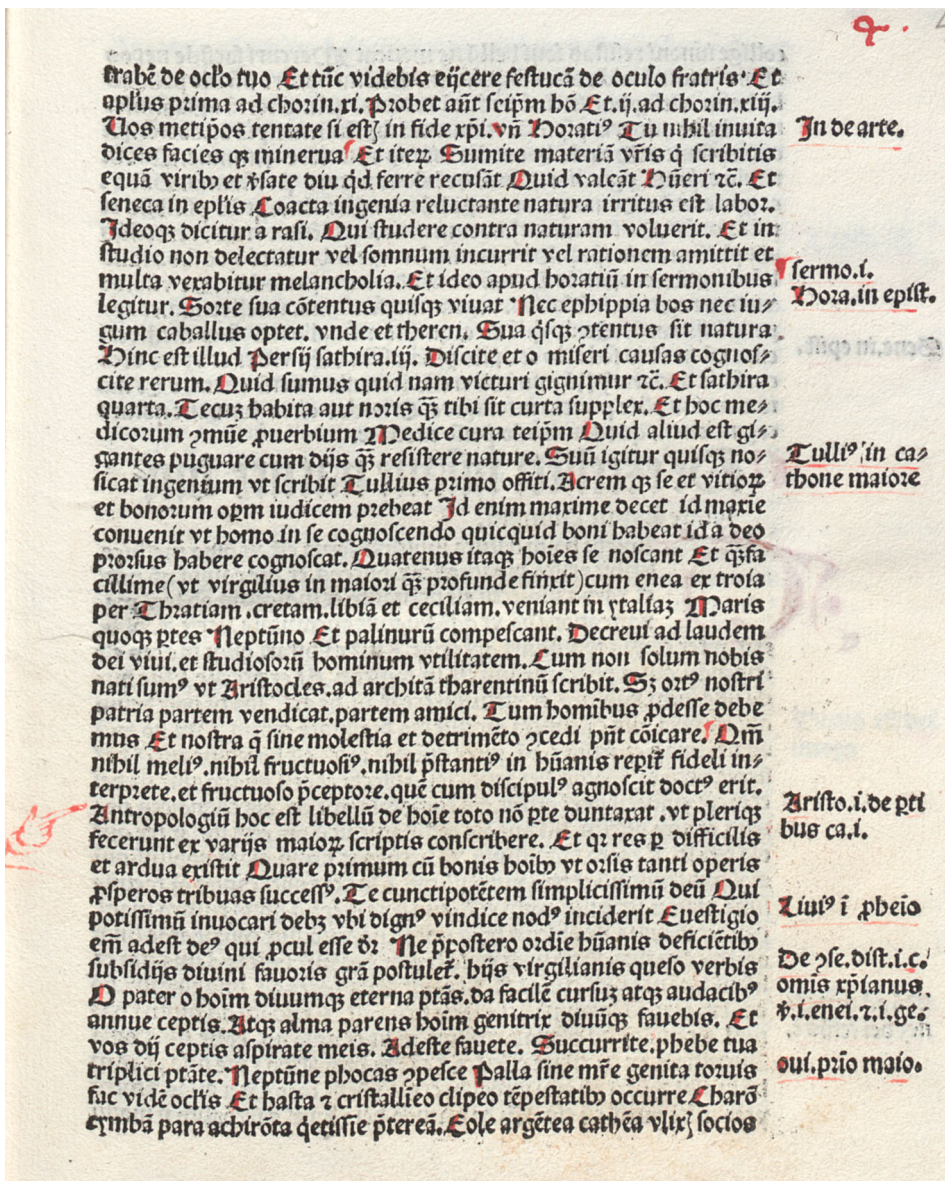 trabē de ocl̄o tuo Et tūc videbis eijcere festucā de oculo fratris· Et
apl̄us prima ad chorin.xi. Probet aūt seip̄m hō Et.ij.ad chorin.xiij.
Uos metip̄os tentate si estꝫ in fide xp̄i.vn̄ Horatiꝰ Tu nihil inuita
In de arte.
dices facies qꝫ minerua Et iteꝝ Sumite materiā vr̄is q̇ scribitis
equā viribꝰ et ꝟsate diu qd̄ ferre recusāt Quid valeāt Hūeri ⁊c̄. Et
seneca in epl̄is Coacta ingenia reluctante natura irritus est labor.
Ideoqꝫ dicitur a rasi. Qui studere contra naturam voluerit. Et in
studio non delectatur vel somnum incurrit vel rationem amittit et
multa vexabitur melancholia. Et ideo apud horatiū in sermonibus
sermo.i.
legitur. Sorte sua cōtentus quisqꝫ viuat Nec ephippia bos nec iu⸗
Hora.in epist.
gum caballus optet. vnde et theren. Sua q̇sqꝫ ꝯtentus sit natura
Hinc est illud Persij sathira.iij. Discite et o miseri causas cognos⸗
cite rerum. Quid sumus quid nam victuri gignimur ⁊c̄. Et sathira
quarta. Tecuꝫ habita aut noris qꝫ̄ tibi sit curta supplex. Et hoc me⸗
dicorum ꝯmūe ꝓuerbium Medice cura teip̄m Quid aliud est gi⸗
gantes puguare cum dijs qꝫ̄ resistere nature. Suū igitur quisqꝫ no⸗
Tulliꝰ in ca⸗
sicat ingenium vt scribit Tullius primo offiti. Acrem qꝫ se et vitioꝝ
thone maiore
et bonorum oꝑm iudicem prebeat Id enim maxime decet id maxie
conuenit vt homo in se cognoscendo quicquid boni habeat id a deo
prorsus habere cognoscat. Quatenus itaqꝫ hoīes se noscant Et qꝫ̄fa
cillime (vt virgilius in maiori qꝫ̄ profunde finxit) cum enea ex troia
per Thratiam .cretam.libiā et ceciliam.veniant in ytaliaꝫ Maris
quoqꝫ ꝑtes Neptūno Et palinurū compescant. Decreui ad laudem
dei viui.et studiosorū hominum vtilitatem. Cum non solum nobis
nati sumꝰ vt Aristocles.ad architā tharentinū scribit. Sꝫ ortꝰ nostri
patria partem vendicat.partem amici. Tum hominibus ꝓdesse debe
mus Et nostra q̄ sine molestia et detrimēto ꝯcedi pn̄t cōicare. Qm̄
nihil meliꝰ.nihil fructuosiꝰ.nihil p̄stantiꝰ in hūanis reꝑit̄ fideli in⸗
terprete.et fructuoso p̄ceptore.quē cum discipulꝰ agnoscit doctꝰ erit.
Antropologiū hoc est libellū de hoīe toto nō ꝑte duntaxat .vt pleriqꝫ
Aristo.i.de ꝑti
fecerunt ex varijs maioꝝ scriptis conscribere. Et qꝛ res ꝑ difficilis
bus ca.i.
et ardua existit Quare primum cū bonis hoībꝰ vt orsis tanti operis
ꝓsperos tribuas successꝰ. Te cunctipotētem simplicissimū deū Qui
potissimū inuocari debꝫ vbi dignꝰ vindice nodꝰ inciderit Euestigio
Liuiꝰ ī ꝓheīo
em̄ adest deꝰ qui ꝓcul esse dr̄ Ne p̄postero ordīe hūanis deficiētibꝰ
subsidijs diuini fauoris grā postulet̄. hijs virgilianis queso verbis
De ꝯse.dist.i.c.
O pater o hoīm diuumqꝫ eterna ptās.da facilē cursuꝫ atqꝫ audacibꝰ
omis xp̄ianus.
annue ceptis. Atqꝫ alma parens hoīm genitrix diuūqꝫ fauebis. Et
ꝟ.i.enei.⁊.i.ge.
vos dij ceptis aspirate meis. Adeste fauete. Succurrite.phebe tua
triplici ptāte. Neptūne phocas ꝯpesce Palla sine mr̄e genita toruis
oui.prīo maio.
fac vidē ocl̄is Et hasta ⁊ cristallīeo clipeo tēpestatibꝰ occurre Charō
cymbā para achirōta q̇etissīe p̄tereā. Eole argētea cathēa vlixꝫ socios